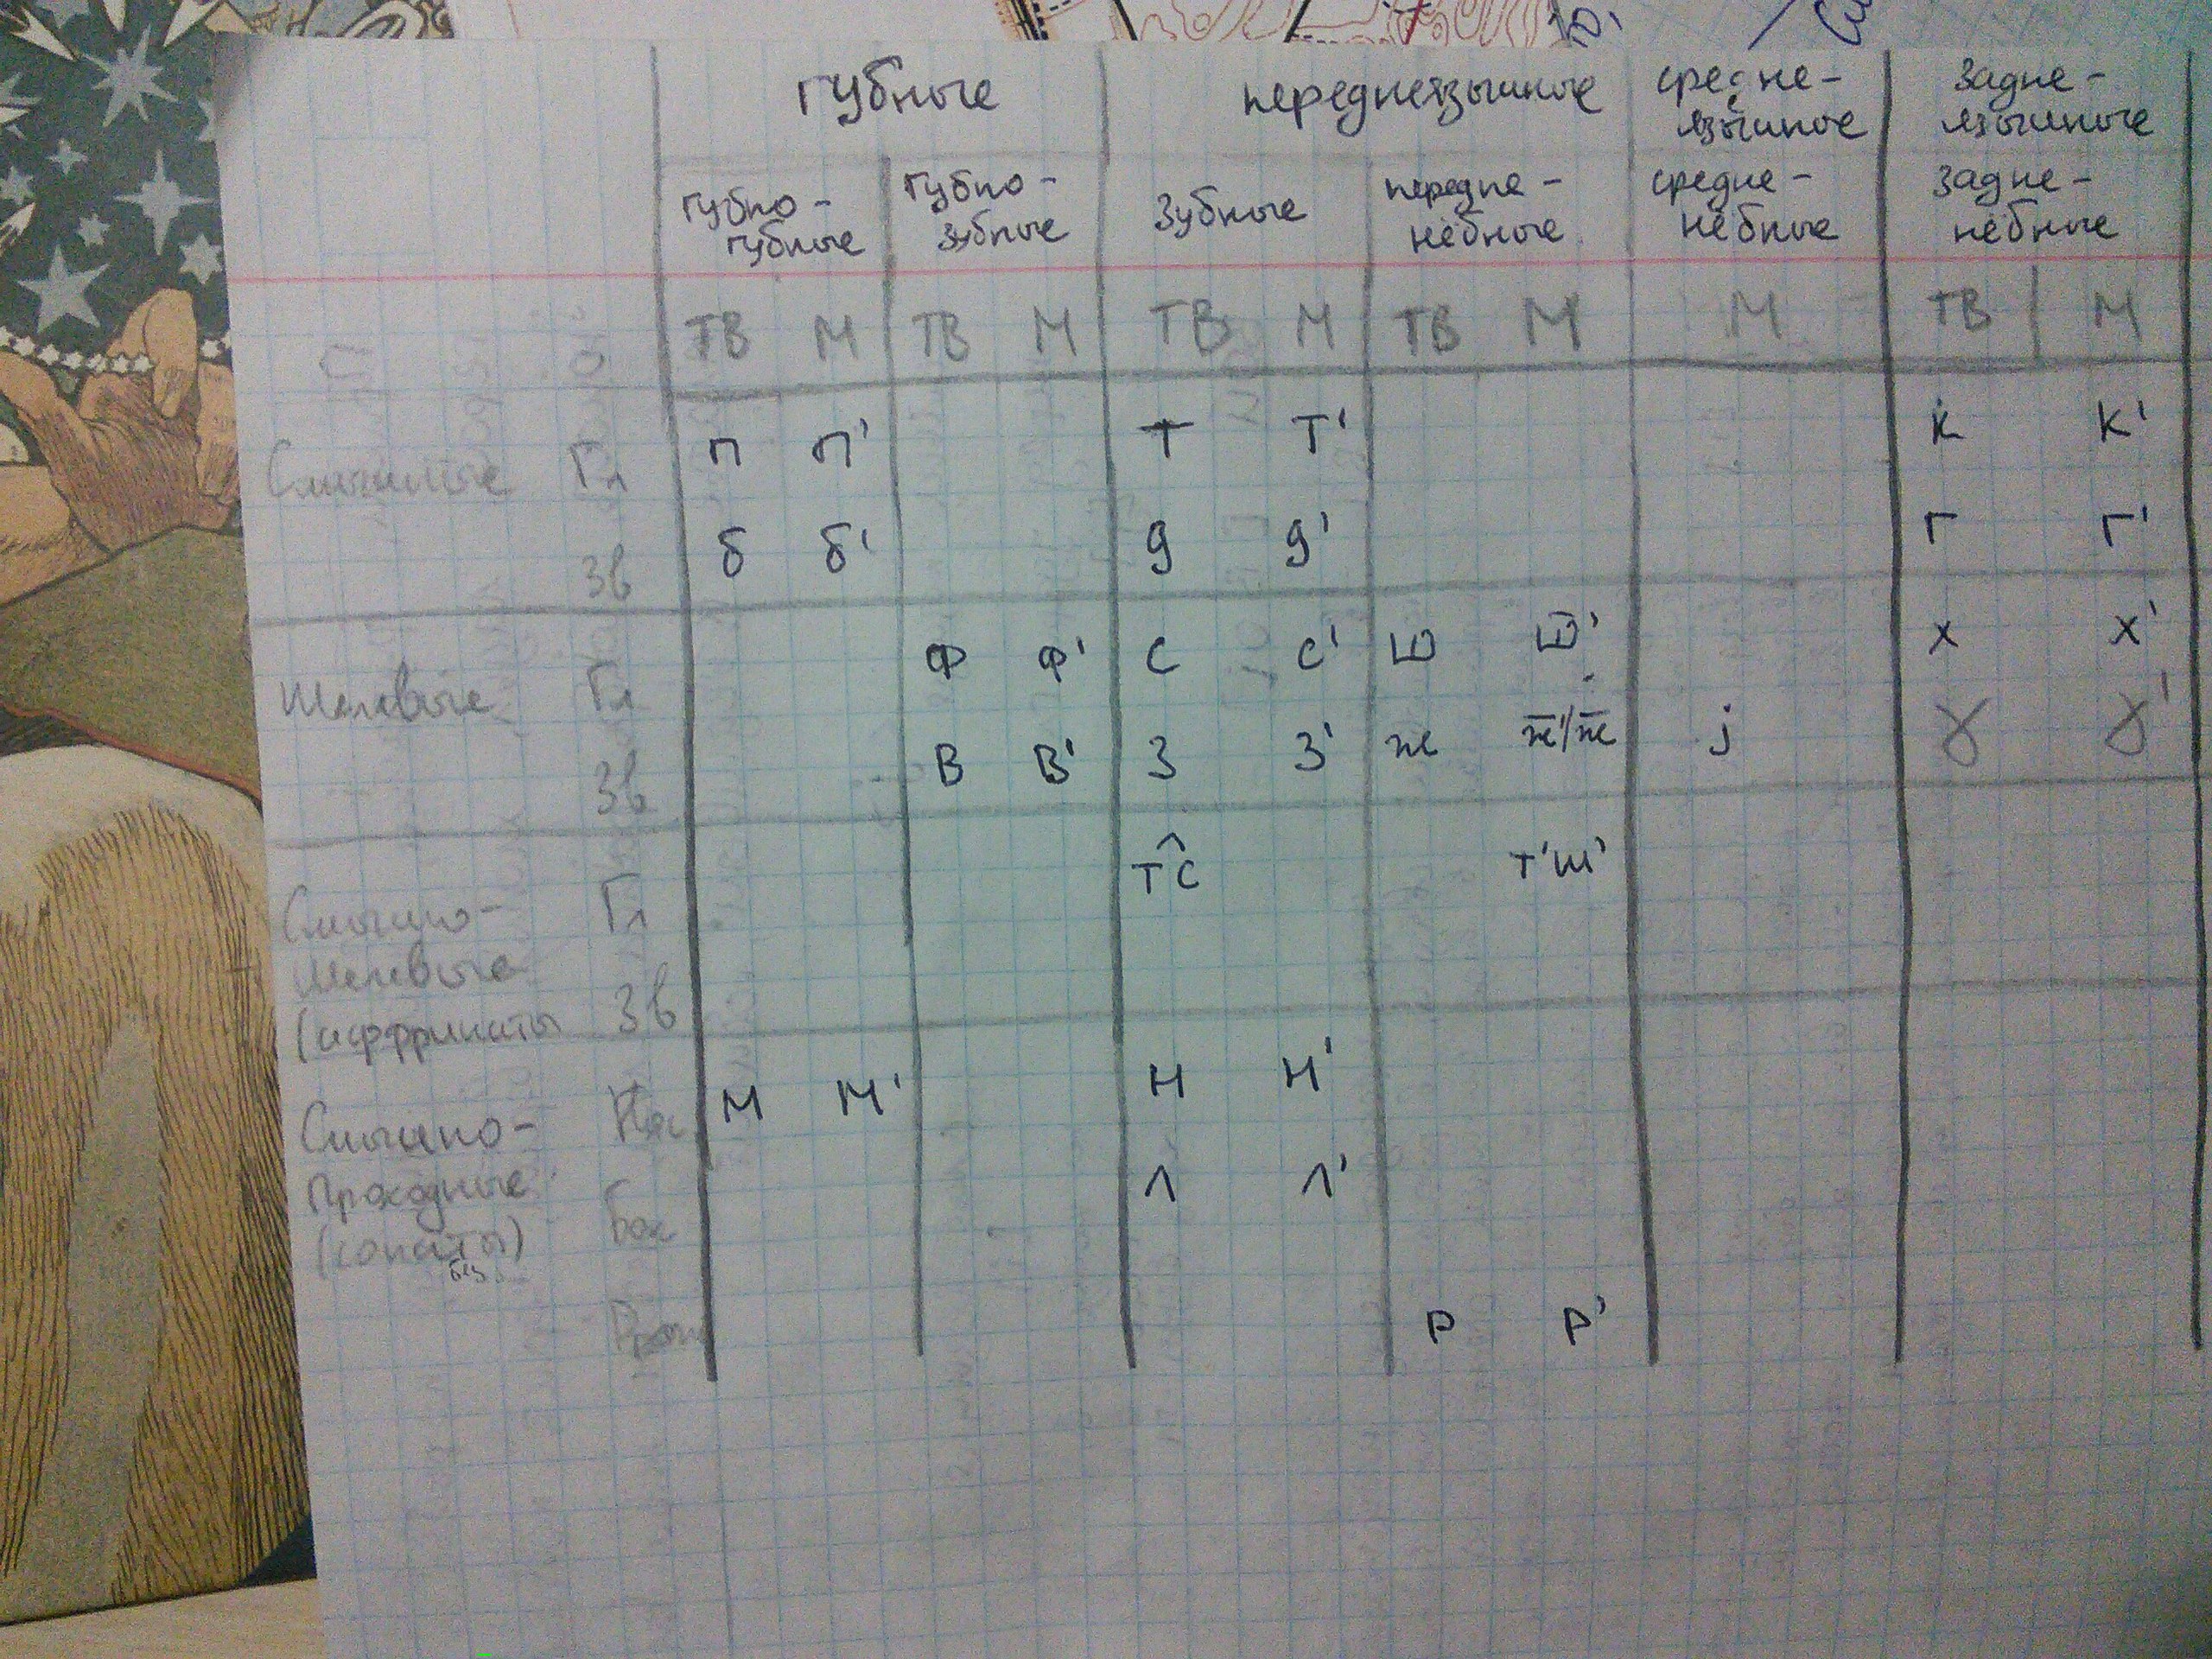 губные переднеязычные средне- задне-
язычные язычные
губно- губно- зубные передне- средне- задне-
губные зубные нёбные нёбные нёбные
ТВ М ТВ М ТВ М ТВ М М ТВ М
Смычные Гл п п' т т' к к'
Зв б б' д д' г г'
Щелевые Гл ф ф' с с' ш ш̄' х х'
Зв в в' з з' ж ж̄'/ж̄ j ɣ ɣ'
Смычно- Гл т͡с т'ш'
Щелевые
(аффрикаты Зв
Смычно- Нос м м' н н'
Проходные
(сонанты) бок л л'
Дрож р р'